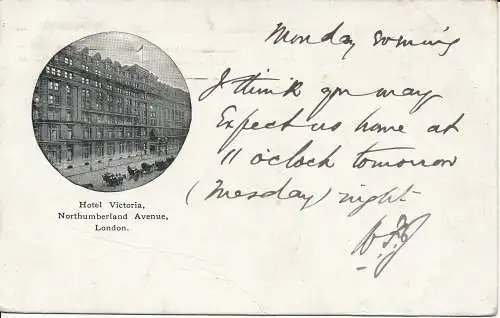 Monday evening
I think you may
Expect us home at
11 o'clock tomorrow
(Tuesday) night
Hotel Victoria,
Northumberland Avenue,
London.